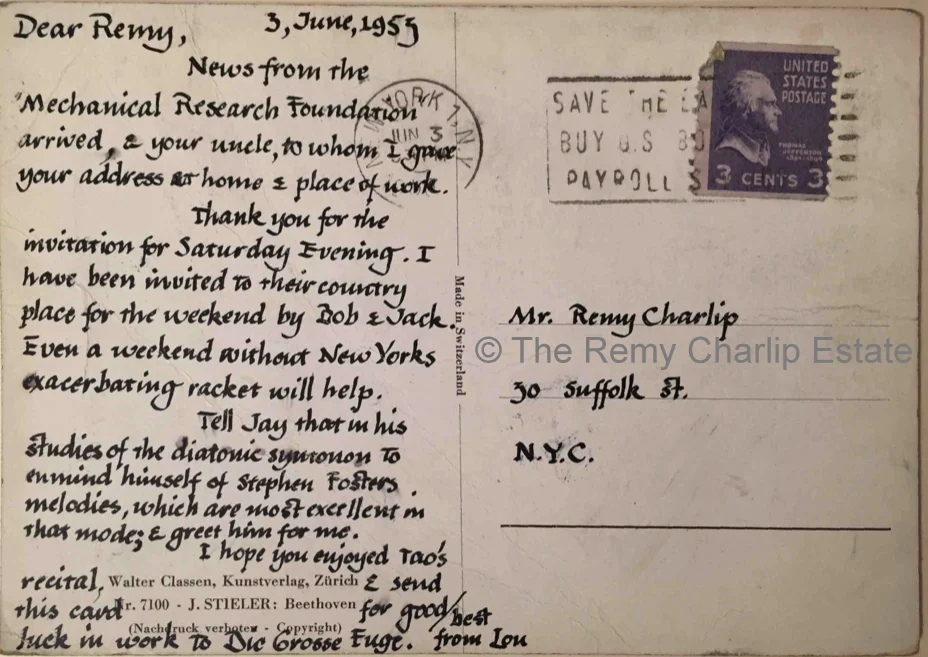 Dear Remy,
3, June, 1955
News from the
Mechanical Research Foundation
arrived, & your uncle, to whom I gave
your address at home & place of work.
Thank you for the
invitation for Saturday Evening. I
have been invited to their country
place for the weekend by Bob & Jack.
Even a weekend without New Yorks
exacerbating racket will help.
Tell Jay that in his
studies of the diatonic syntonon to
enmind himself of Stephen Fosters
melodies, which are most excellent in
that mode; & greet him for me.
I hope you enjoyed Tao's
recital, & send
this card for good/best
luck in work to Die Grosse Fuge. from Lou
Walter Classen, Kunstverlag, Zürich
Nr. 7100 - J. STIELER: Beethoven
(Nachdruck verboten - Copyright)
Made in Switzerland
YORK 1, N.Y.
JUN 3
SAVE THE
BUY U.S. BO
PAYROLL S
UNITED
STATES
POSTAGE
THOMAS
JEFFERSON
3 CENTS 3
Mr. Remy Charlip
© The Remy Charlip Estate
30 Suffolk St.
N.Y.C.